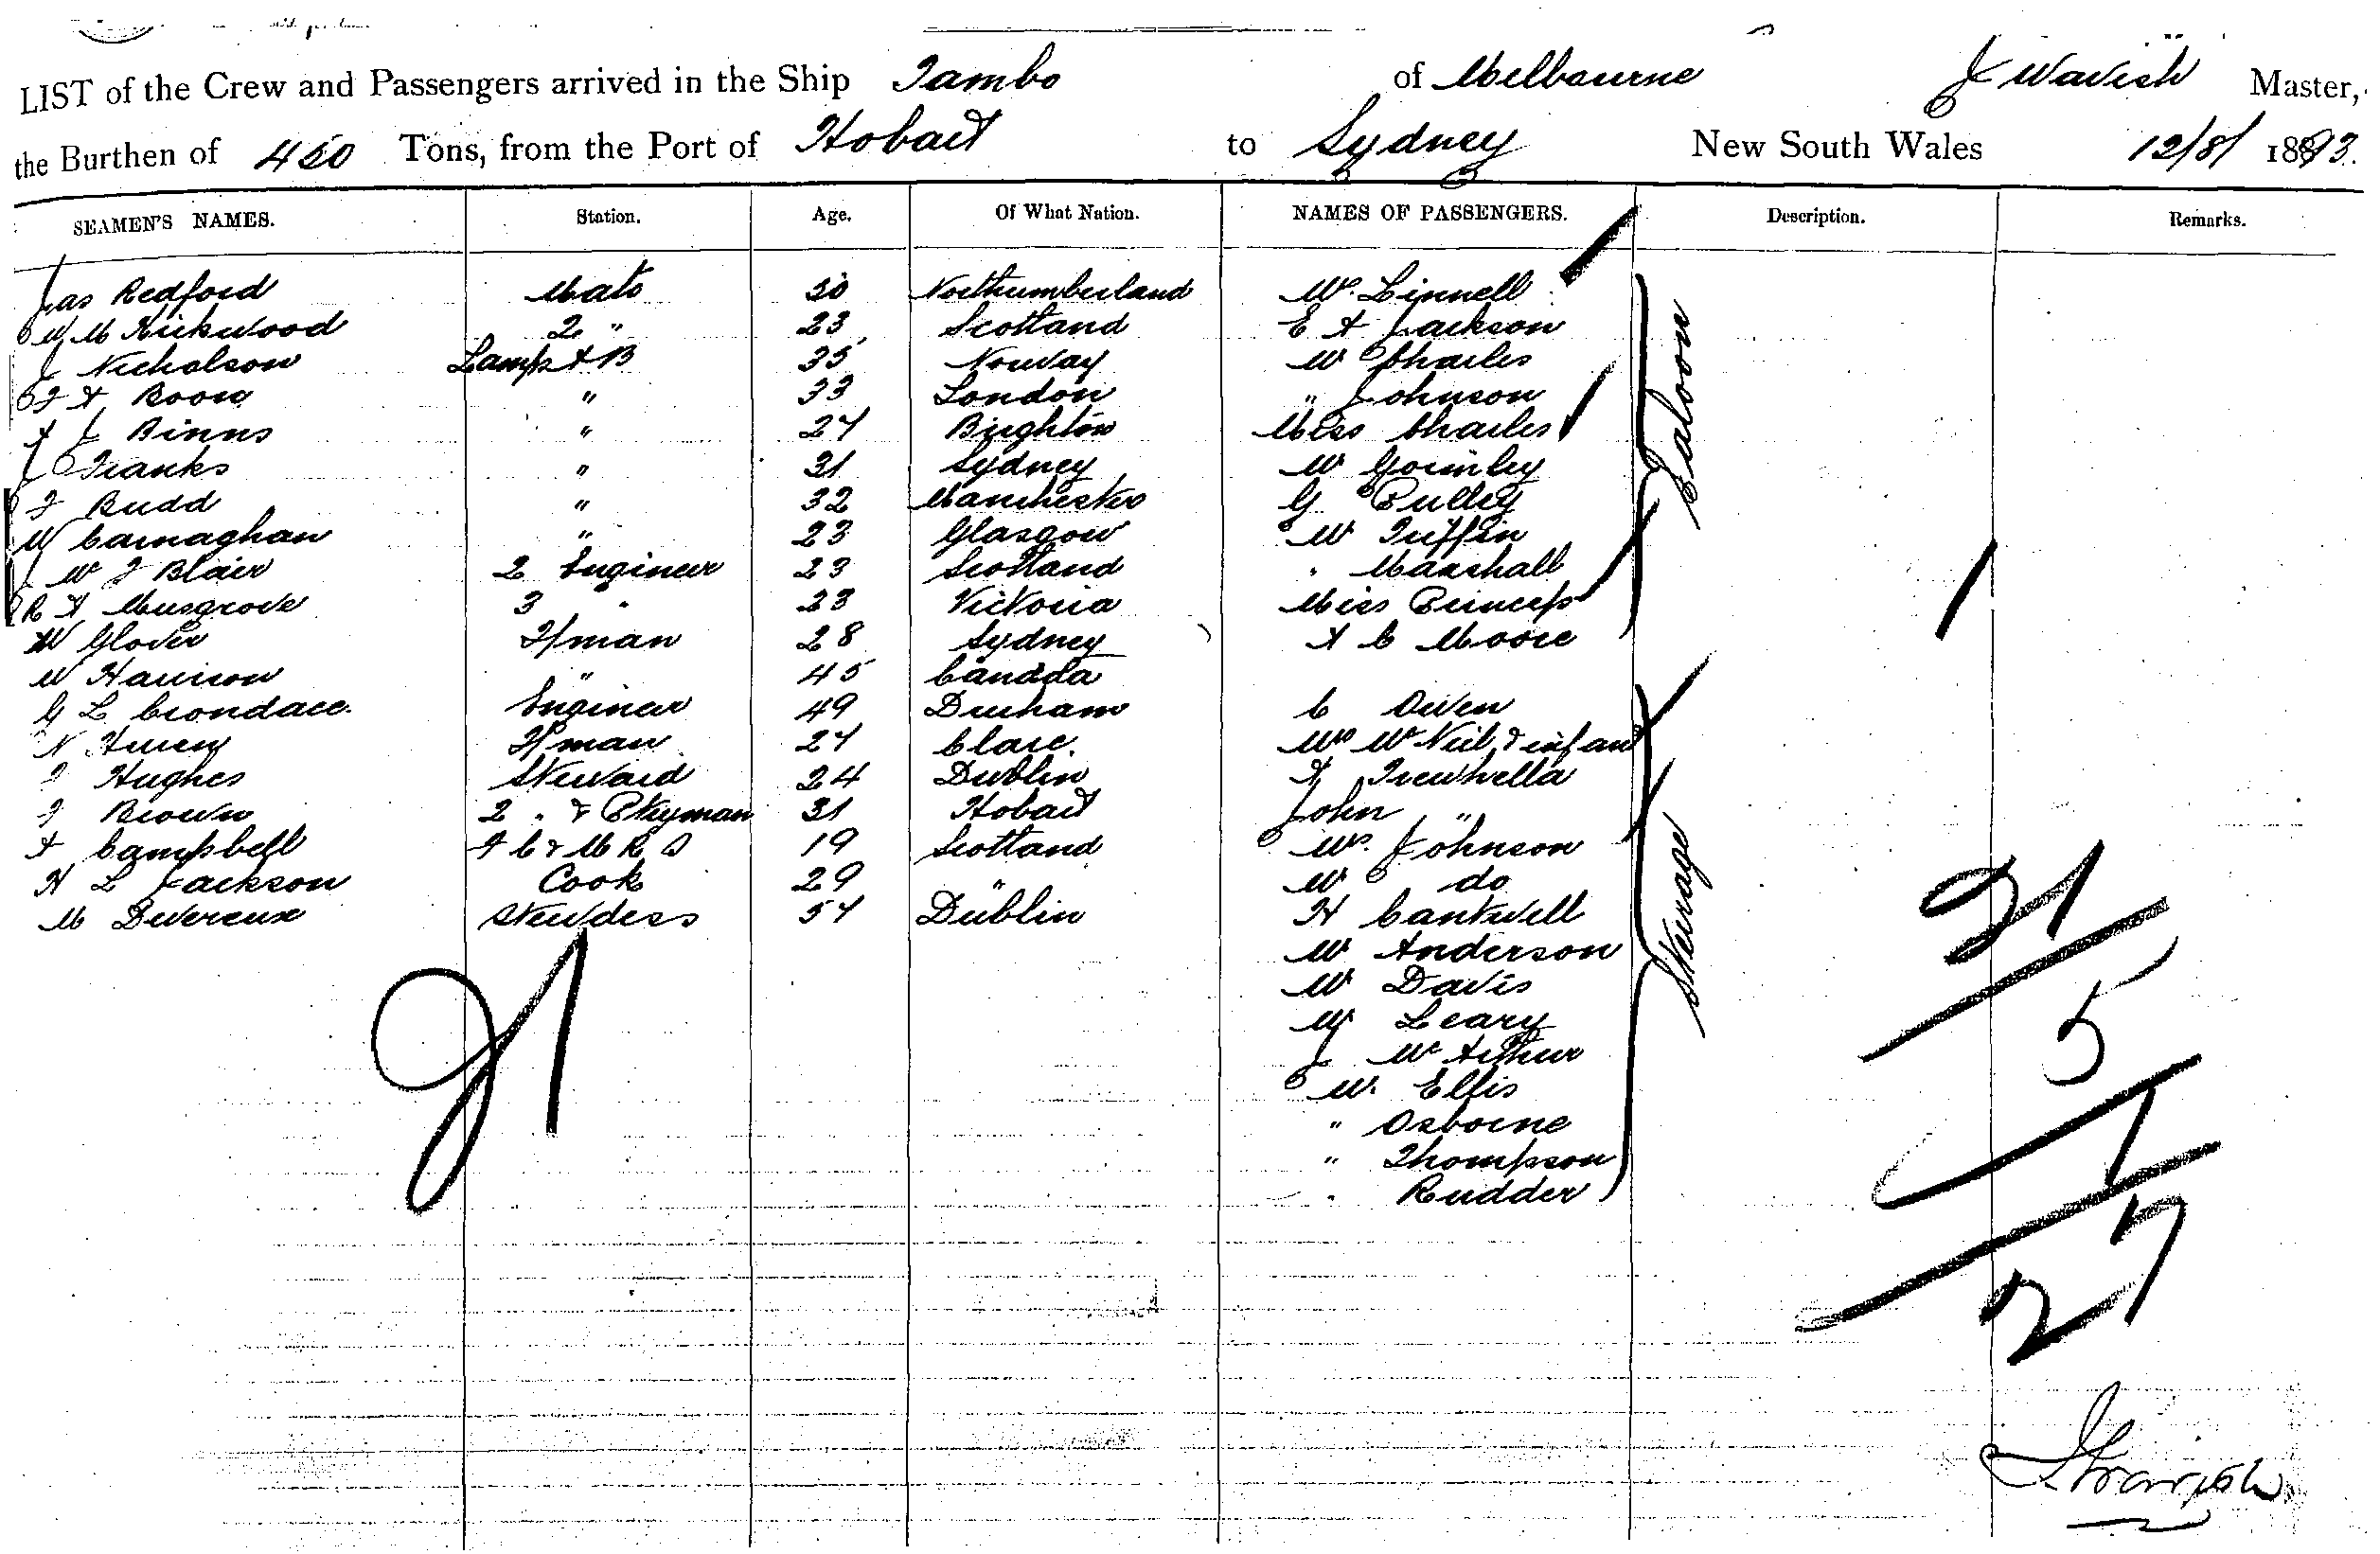 LIST of the Crew and Passengers arrived in the Ship Tambo of Melbourne J Wavish Master,
the Burthen of 460 Tons, from the Port of Hobart to Sydney New South Wales 12/8/ 1893.
SEAMEN'S NAMES. Station. Age. Of What Nation. NAMES OF PASSENGERS. Description. Remarks.
Jas Redford Mate 30 Northumberland Mrs Linnell
W M Kirkwood 2 " 23 Scotland E A Jackson
J Nicholson Lamps & AB 35 Norway Mr Charles
F A Boon " 33 London " Johnson
A J Binns " 27 Brighton Miss Charles
J Franks " 31 Sydney Mr Gormley
F Rudd " 32 Manchester G Pulley
W Carnaghan " 23 Glasgow Mr Tuffin
J W F Blair 2 Engineer 23 Scotland " Marshall
R A Musgrove 3 " 23 Victoria Miss Princep
W Glover F/man 28 Sydney A C Moore
W Harrison " 45 Canada
G L Crondace Engineer 49 Durham C Owen
N F/man 27 Clare. Mrs McNeil & infant
J Hughes Steward 24 Dublin A Trewhella
J Brown 2 " & Ptryman 31 Hobart John "
A Campbell F C & M R S 19 Scotland Mrs Johnson
H L Jackson Cook 29 " Mr do
M Devereux Stewdess 57 Dublin H Cantwell
Mr Anderson
Mr Davis
Mr Leary
J McArthur
Mr Ellis
" Osborne
" Thompson
" Rudder
Saloon
Steerage
21
21
5
1
27
J Wavish